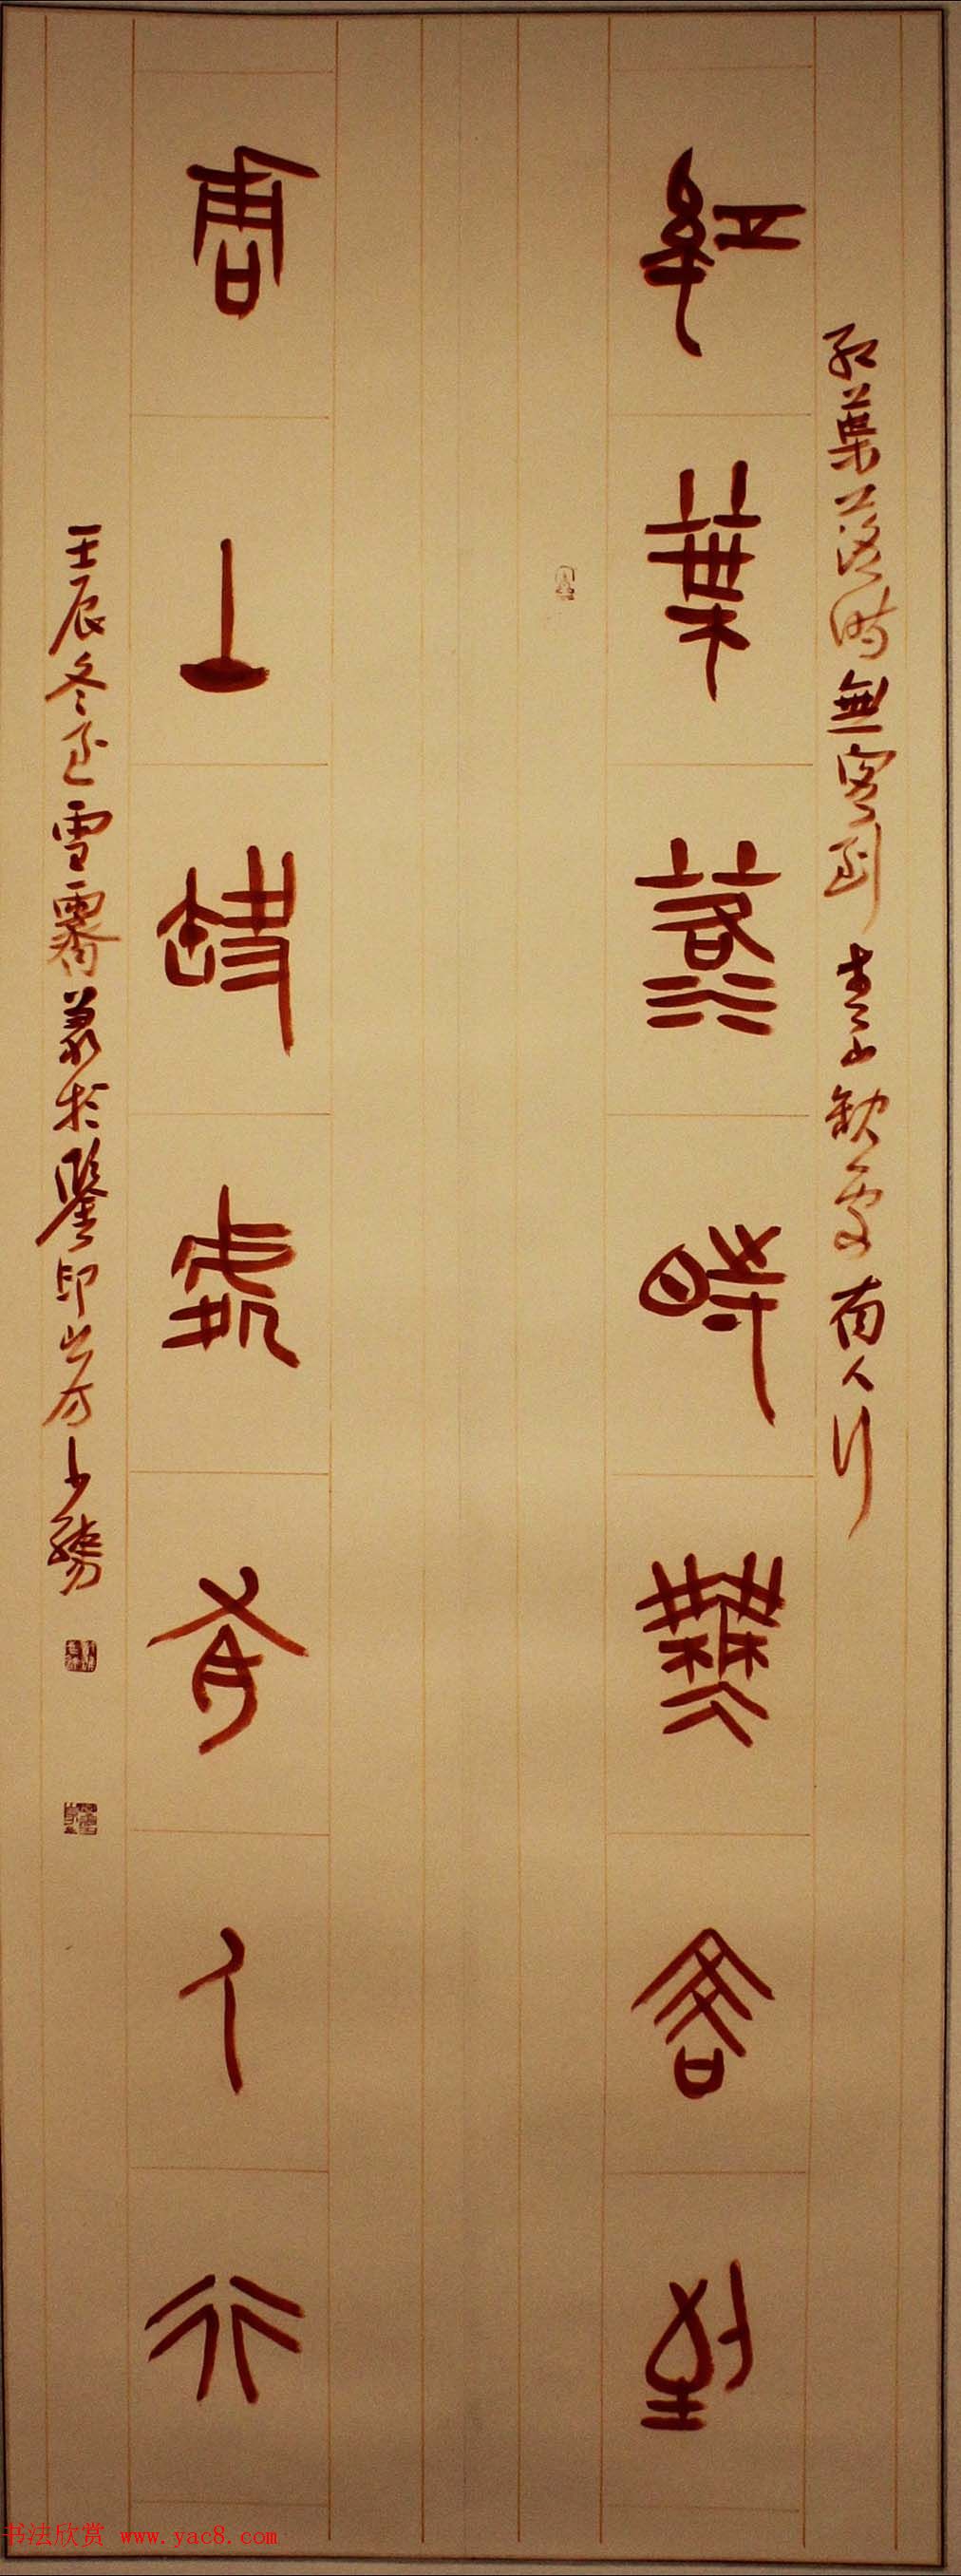 紅葉落時無客到青山缺處有人行
紅葉落時無客到
青山缺處有人行
壬辰冬至雪霽篆於鑒印山房少孺
书法欣赏 www.yac8.com